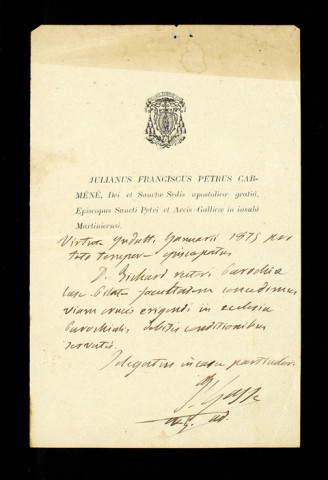 JULIANUS FRANCISCUS PETRUS CAR-
MÉNÉ, Dei et Sanctæ Sedis apostolicæ gratiâ,
Episcopus Sancti Petri et Arcis Gallicæ in insulâ
Martinicensi.
Virtute Indulti Januarii 1875 pro
toto tempore episcopatus
D. Richard rectori Parochiæ
Case Pilote facultatem concedimus
viam crucis erigendi in ecclesia
parochiali, debitis conditionibus
servatis.
Delegatus in casu particulari